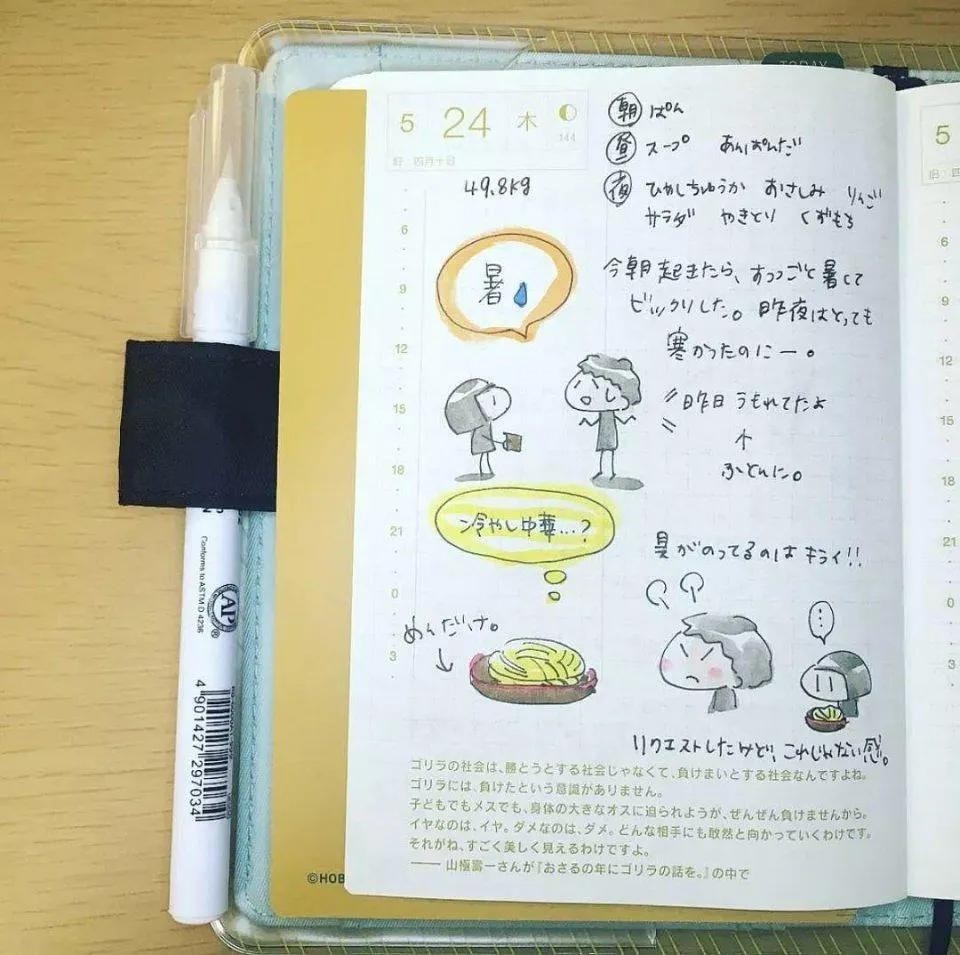 TODAY
5 24 木
144
旧:四月十日
49.8kg
朝 ぱん
昼 スープ あんぱんだ
夜 ひやしちゅうか おさしみ りんご
サラダ やきとり くずもち
6
9
12
15
18
21
0
3
暑
今朝起きたら、すっごと暑くて
ビックリした。昨夜はとっても
寒かったのにー。
昨日うもれてたよ
ふとんに。
冷やし中華…?
具がのってるのはキライ!!
めんだけ。
…
リクエストしたけど、これじゃない感。
ゴリラの社会は、勝とうとする社会じゃなくて、負けまいとする社会なんですよね。
ゴリラには、負けたという意識がありません。
子どもでもメスでも、身体の大きなオスに迫られようが、ぜんぜん負けませんから。
イヤなのは、イヤ。ダメなのは、ダメ。どんな相手にも敢然と向かっていくわけです。
それがね、すごく美しく見えるわけですよ。
—— 山極壽一さんが『おさるの年にゴリラの話を。』の中で
©HOB
Conforms to ASTM D 4236
AP
4 901427 297034
5
旧:四
6
9
12
15
18
21
0
3